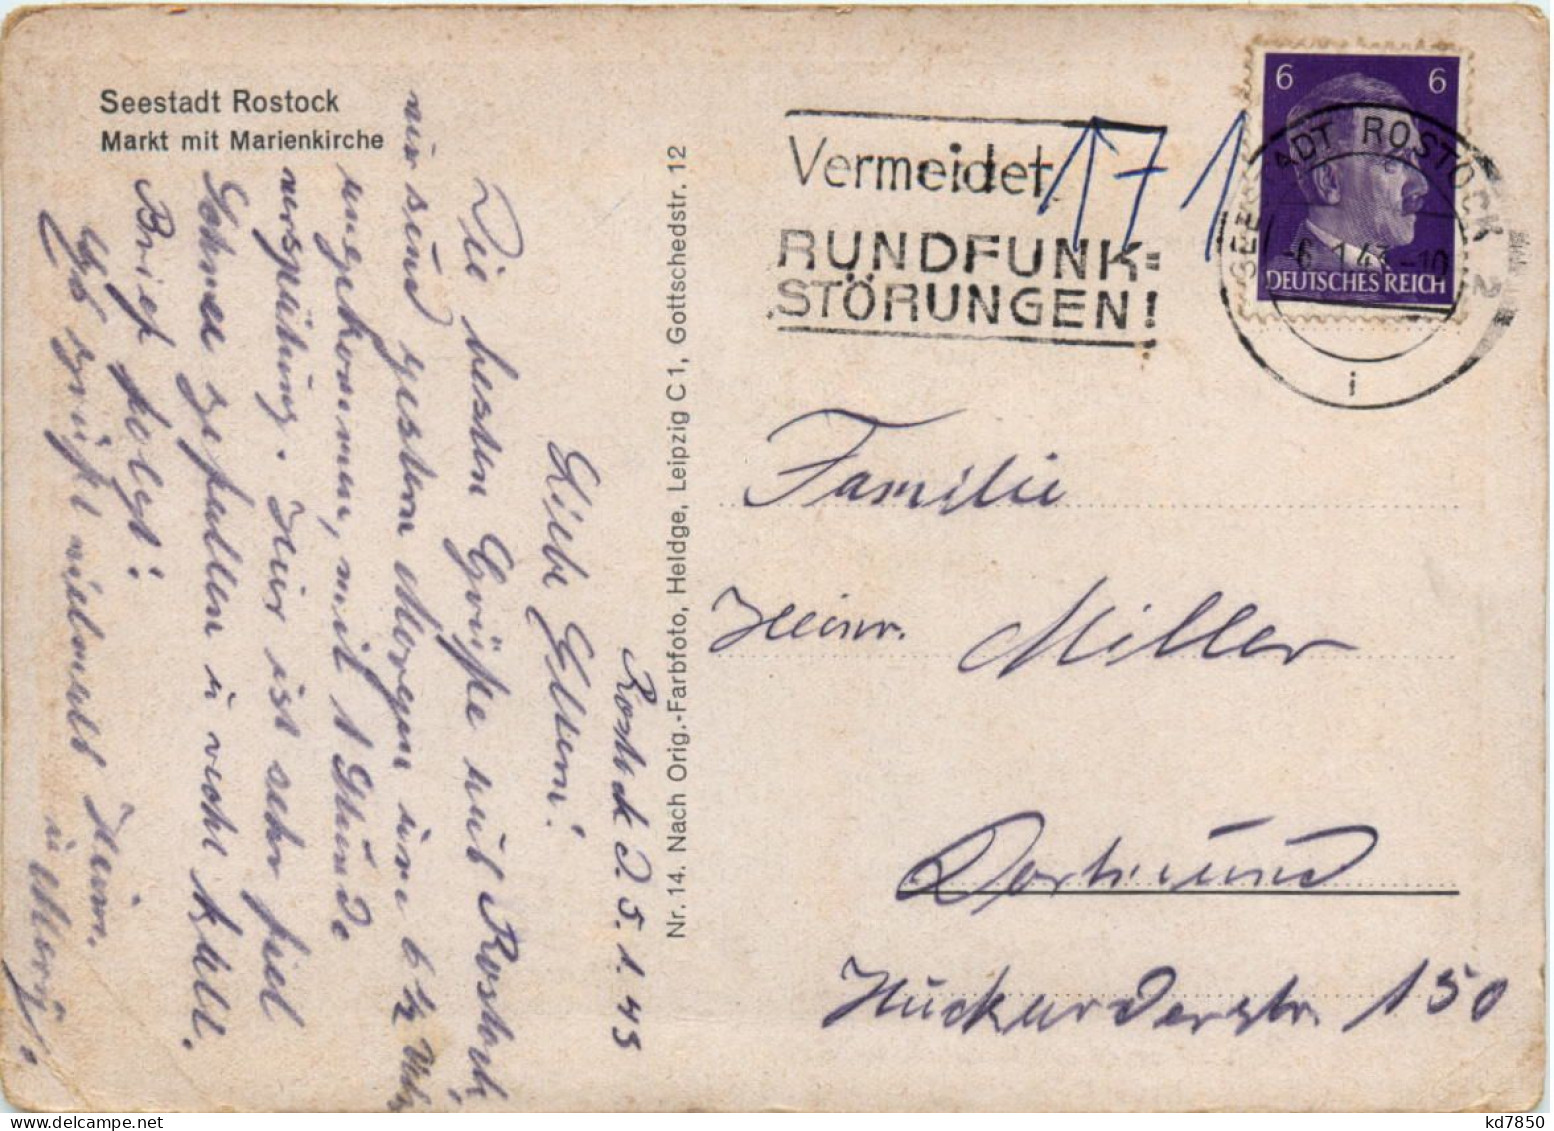 Seestadt Rostock
Markt mit Marienkirche
Rostock d. 5.1.43
Liebe Eltern!
Die besten Grüße aus Rostock,
wir sind gestern Morgen um 6 1/2 Uhr
angekommen, mit 1 Stunde
verspätung. Hier ist sehr viel
Schnee gefallen u recht kalt.
Brief folgt!
Es grüßt vielmals Heinr.
u
Nr. 14. Nach Orig.-Farbfoto, Heldge, Leipzig C 1, Gottschedstr. 12
Vermeidet
RUNDFUNK=
STÖRUNGEN!
171
6 6
DEUTSCHES REICH
SEESTADT ROSTOCK 2
-6.1.43.-10
i
Familie
Heinr. Miller
Dortmund
Huckarderstr. 150
kd7850